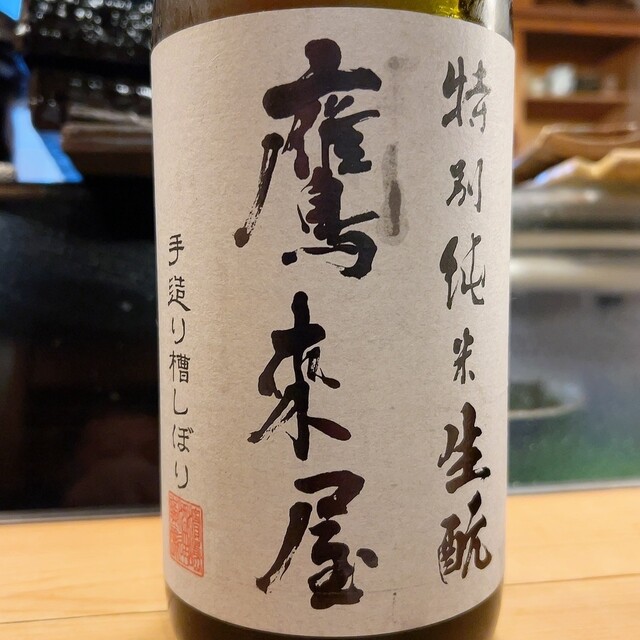 特別純米生酛
鷹来屋
手造り槽しぼり